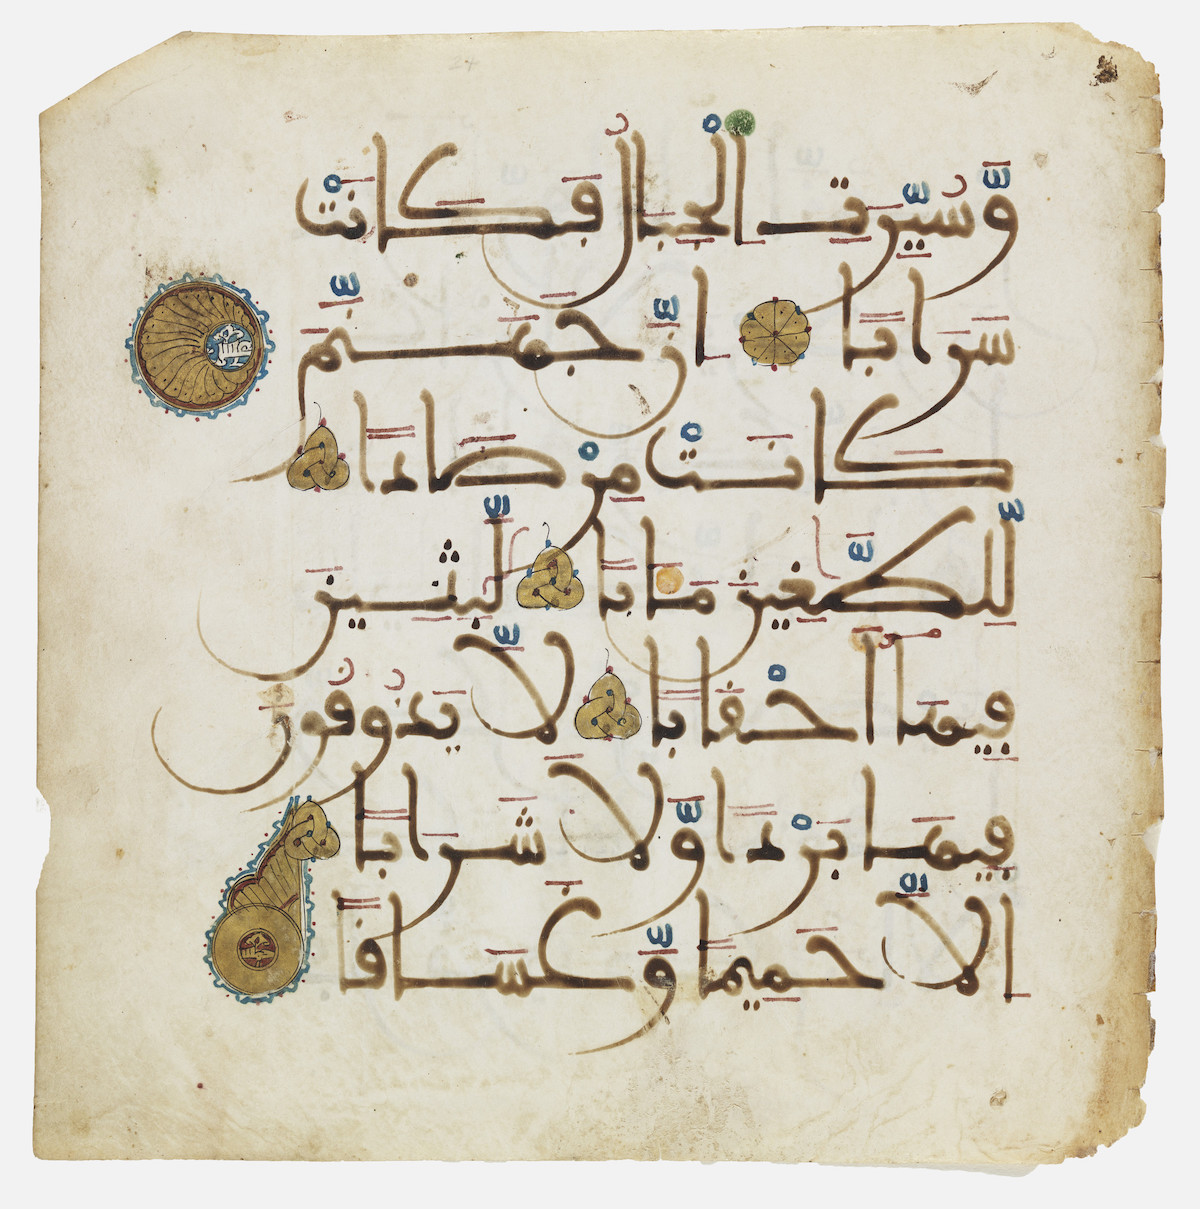 وَّسُيِّرَتِ الْجِبَالُ فَكَانَتْ
سَرَابًا اِنَّ جَهَنَّمَ
كَانَتْ مِرْصَادًا
لِّلطَّٰغِينَ مَـَٔابًا لَّٰبِثِينَ
فِيهَا أَحْقَابًا لَّا يَذُوقُونَ
فِيهَا بَرْدًا وَّلَا شَرَابًا
اِلَّا حَمِيمًا وَّغَسَاقًا